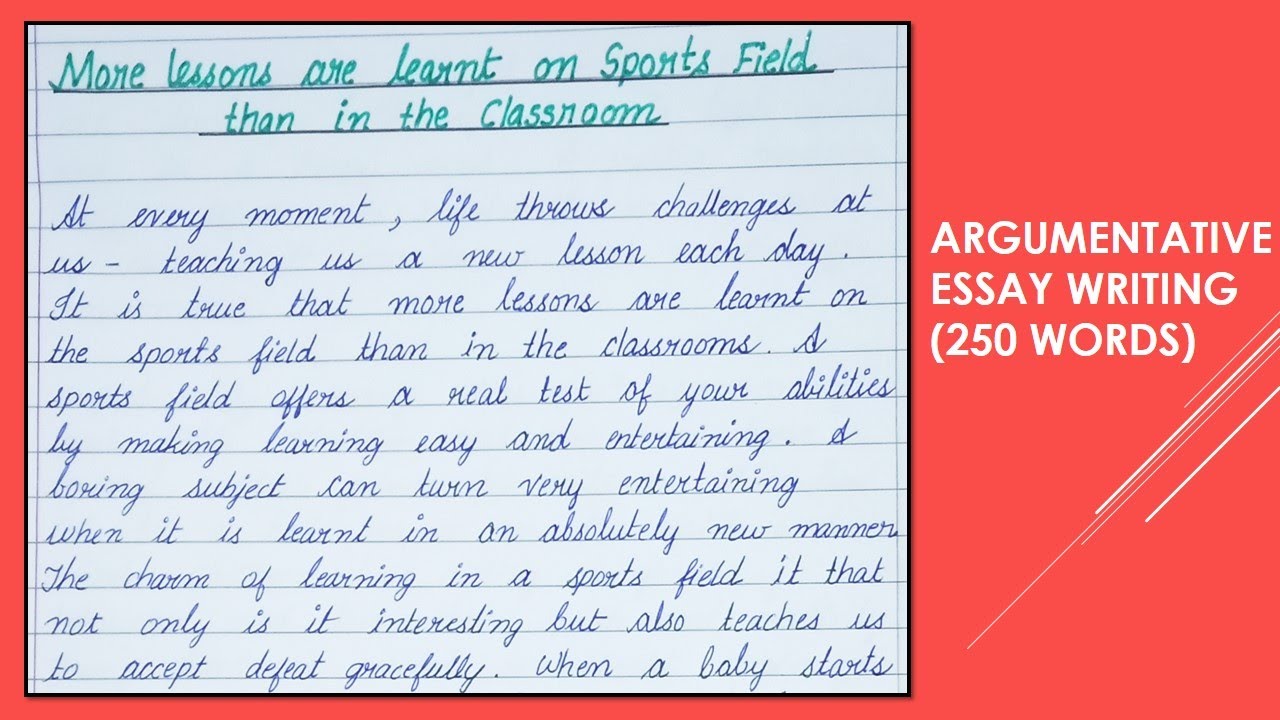 More lessons are learnt on Sports Field
than in the Classroom
At every moment, life throws challenges at
us - teaching us a new lesson each day.
It is true that more lessons are learnt on
the sports field than in the classrooms. A
sports field offers a real test of your abilities
by making learning easy and entertaining. A
boring subject can turn very entertaining
when it is learnt in an absolutely new manner.
The charm of learning in a sports field it that
not only is it interesting but also teaches us
to accept defeat gracefully. When a baby starts
ARGUMENTATIVE
ESSAY WRITING
(250 WORDS)